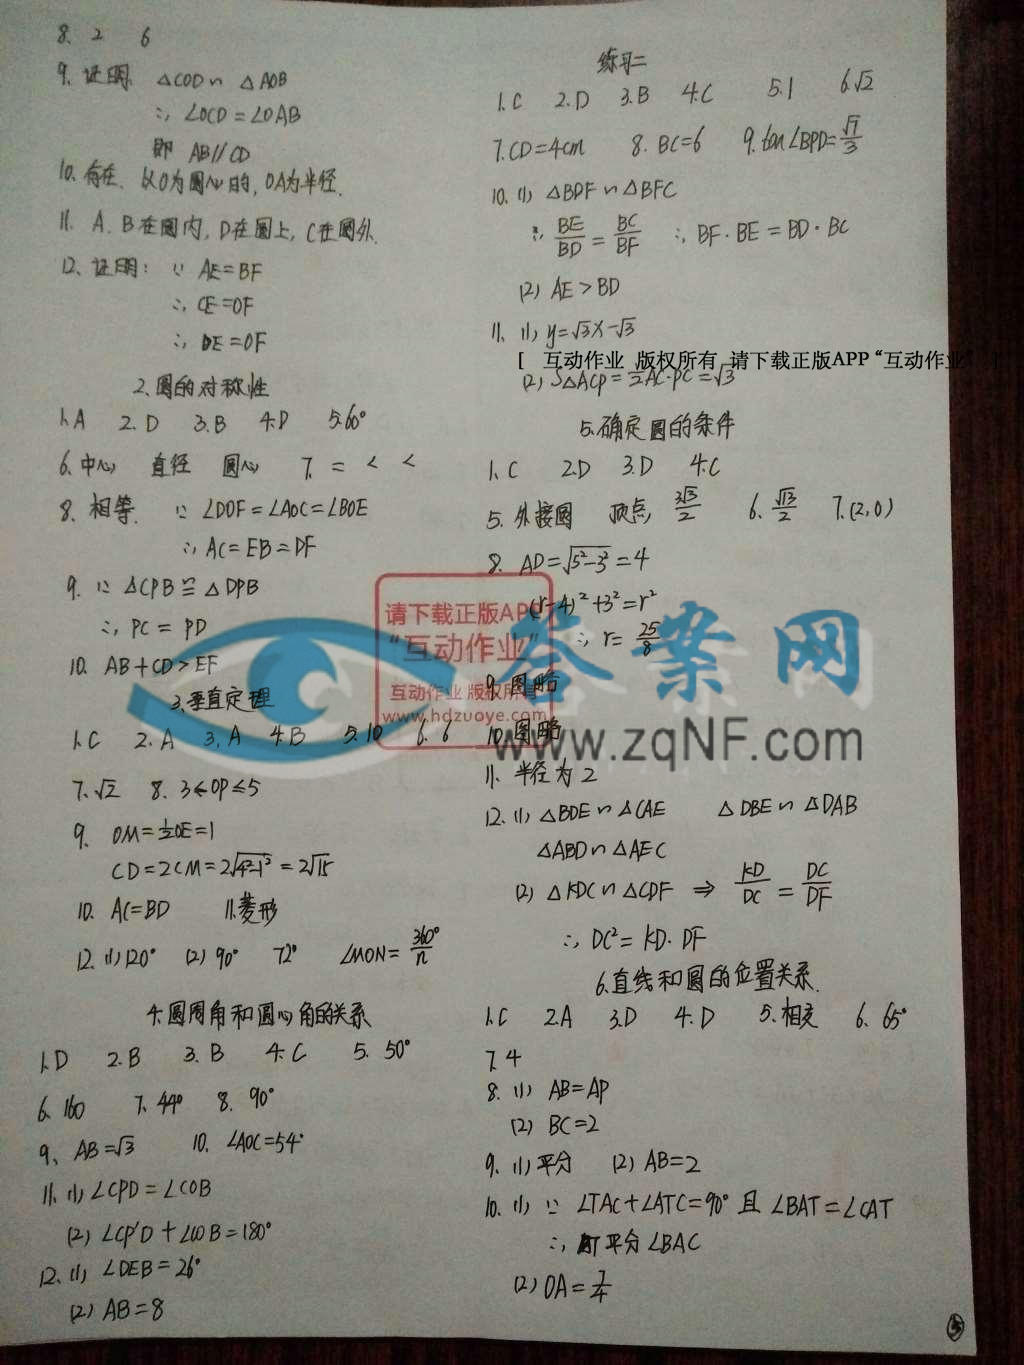 8. 2 6
9. 证明 △COD∽△AOB
∴∠OCD=∠OAB
即 AB∥CD
10. 存在. 以O为圆心的, OA为半径.
11. A. B在圆内, D在圆上, C在圆外.
12. 证明: ∵ AE=BF
∴ CE=OF
∴ DE=OF
2. 圆的对称性
1. A 2. D 3. B 4. D 5. 60°
6. 中心 直径 圆心 7. = < <
8. 相等. ∵ ∠DOF=∠AOC=∠BOE
∴ AC=EB=DF
9. ∵ △CPB≌△DPB
∴ PC=PD
10. AB+CD>EF
3. 垂直定理
1. C 2. A 3. A 4. B 5. 10 6. 6
7. √2 8. 3≤OP≤5
9. OM=½OE=1
CD=2CM=2√(4²-1²)=2√15
10. AC=BD 11. 菱形
12. (1) 120° (2) 90° 72° ∠MON=360°/n
4. 圆周角和圆心角的关系
1. D 2. B 3. B 4. C 5. 50°
6. 160 7. 44° 8. 90°
9. AB=√3 10. ∠AOC=54°
11. (1) ∠CPD=∠COB
(2) ∠CP'D+∠COB=180°
12. (1) ∠DEB=26°
(2) AB=8
练习二
1. C 2. D 3. B 4. C 5. 1 6. √2
7. CD=4cm 8. BC=6 9. tan∠BPD=√7/3
10. (1) △BDF∽△BFC
∴ BE/BD=BC/BF ∴ BF·BE=BD·BC
(2) AE>BD
11. (1) y=√3x-√3
[ 互动作业 版权所有 请下载正版APP“互动作业” ]
(2) S△ACP=½AC·PC=√3
5. 确定圆的条件
1. C 2. D 3. D 4. C
5. 外接圆 顶点 3√3/2 6. √13/2 7. (2,0)
8. AD=√(5²-3²)=4
(r-4)²+3²=r²
∴ r=25/8
9. 图略
10. 图略
11. 半径为2
12. (1) △BDE∽△CAE △DBE∽△DAB
△ABD∽△AEC
(2) △KDC∽△CDF ⇒ KD/DC=DC/DF
∴ DC²=KD·DF
6. 直线和圆的位置关系.
1. C 2. A 3. D 4. D 5. 相交 6. 65°
7. 4
8. (1) AB=AP
(2) BC=2
9. (1) 平分 (2) AB=2
10. (1) ∵ ∠TAC+∠ATC=90° 且 ∠BAT=∠CAT
∴ AT平分∠BAC
(2) OA=7/4
请下载正版APP
“互动作业”
互动作业 版权所有
www.hdzuoye.com
答案网
www.zqNF.com
⑤